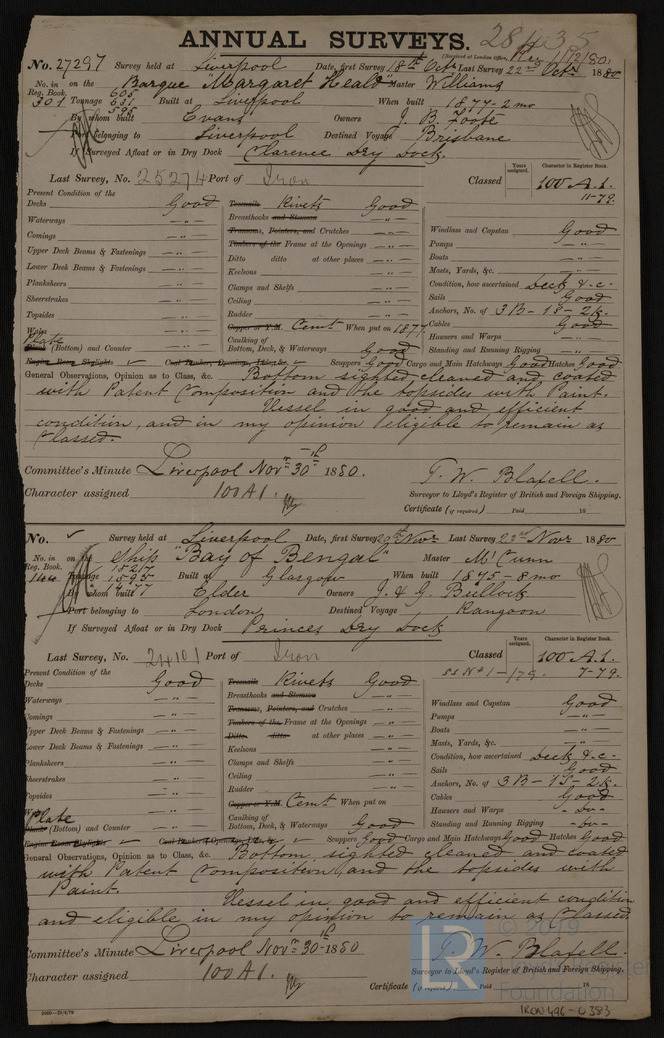 ANNUAL SURVEYS. 28435
(Received at London Office, 1/12/80)
No. 27297 Survey held at Liverpool Date, first Survey 18th Octr Last Survey 22nd Octr 1880
No. in Reg. Book. 301 on the Barque "Margaret Heald" Master Williams
Tonnage 665 631 595 Built at Liverpool When built 1877-2 mo
By whom built Evans Owners J. B. Foote
Port belonging to Liverpool Destined Voyage Brisbane
If Surveyed Afloat or in Dry Dock Clarence Dry Dock.
Last Survey, No. 25274 Port of Iron Classed Years assigned. Character in Register Book. 100 A.1. 11-79.
Present Condition of the
Decks Good Treenails Rivets Good
Waterways — „ — Breasthooks and Stemson — „ — Windlass and Capstan Good
Comings — „ — Transoms, Pointers, and Crutches — „ — Pumps — „ —
Upper Deck Beams & Fastenings — „ — Timbers of the Frame at the Openings — „ — Boats — „ —
Lower Deck Beams & Fastenings — „ — Ditto ditto at other places — „ — Masts, Yards, &c. — „ —
Planksheers — „ — Keelsons — „ — Condition, how ascertained Deck &c.
Sheerstrakes — „ — Clamps and Shelfs — „ — Sails Good
Topsides — „ — Ceiling — „ — Anchors, No. of 3 B - 1 S - 2 K.
Wales Rudder — „ — Cables Good
Plate Plank (Bottom) and Counter — „ — Copper or Y.M. Cemt. When put on 1877 Hawsers and Warps — „ —
Caulking of Bottom, Deck, & Waterways Good Standing and Running Rigging — „ —
Engine Room Skylights ✓ Coal Bunker, Openings, Lids, &c. ✓ Scuppers Good Cargo and Main Hatchways Good Hatches Good
General Observations, Opinion as to Class, &c. Bottom sighted, cleaned and coated
with Patent Composition and the topsides with Paint.
Vessel in good and efficient
condition, and in my opinion eligible to remain as
Classed.
Committee's Minute Liverpool Novr. 30th 1880.
Character assigned 100 A1. T. W. Blafell.
Surveyor to Lloyd's Register of British and Foreign Shipping.
Certificate (if required) Paid 18
No. ✓ Survey held at Liverpool Date, first Survey 20th Novr Last Survey 22nd Novr 1880
No. in Reg. Book. on the Ship "Bay of Bengal" Master McCunn
Tonnage 1595 Built at Glasgow When built 1875-8 mo
By whom built Elder Owners J. & G. Bullock
Port belonging to London Destined Voyage Rangoon
If Surveyed Afloat or in Dry Dock Princes Dry Dock
Last Survey, No. 24101 Port of Iron Classed Years assigned. Character in Register Book. 100 A.1.
SS No 1 - 179. 7-79.
Present Condition of the
Decks Good Treenails Rivets Good
Waterways — „ — Breasthooks and Stemson — „ — Windlass and Capstan Good
Comings — „ — Transoms, Pointers, and Crutches — „ — Pumps — „ —
Upper Deck Beams & Fastenings — „ — Timbers of the Frame at the Openings — „ — Boats — „ —
Lower Deck Beams & Fastenings — „ — Ditto ditto at other places — „ — Masts, Yards, &c. — „ —
Planksheers — „ — Keelsons — „ — Condition, how ascertained Deck &c.
Sheerstrakes — „ — Clamps and Shelfs — „ — Sails Good
Topsides — „ — Ceiling — „ — Anchors, No. of 3 B - 1 S - 2 K.
Rudder — „ — Cables Good
Plate Plank (Bottom) and Counter — „ — Copper or Y.M. Cemt. When put on Hawsers and Warps - Do -
Caulking of Bottom, Deck, & Waterways Good Standing and Running Rigging - Do -
Engine Room Skylights ✓ Coal Bunker, Openings, Lids, &c. ✓ Scuppers Good Cargo and Main Hatchways Good Hatches Good
General Observations, Opinion as to Class, &c. Bottom sighted cleaned and coated
with Patent Composition and the topsides with
Paint.
Vessel in good and efficient condition
and eligible in my opinion to remain as Classed
Committee's Minute Liverpool Novr. 30th 1880
Character assigned 100 A1. T. W. Blafell.
Surveyor to Lloyd's Register of British and Foreign Shipping.
Certificate (if required) Paid 18
© 2019 Lloyd's Register Foundation
IRON 496-0383